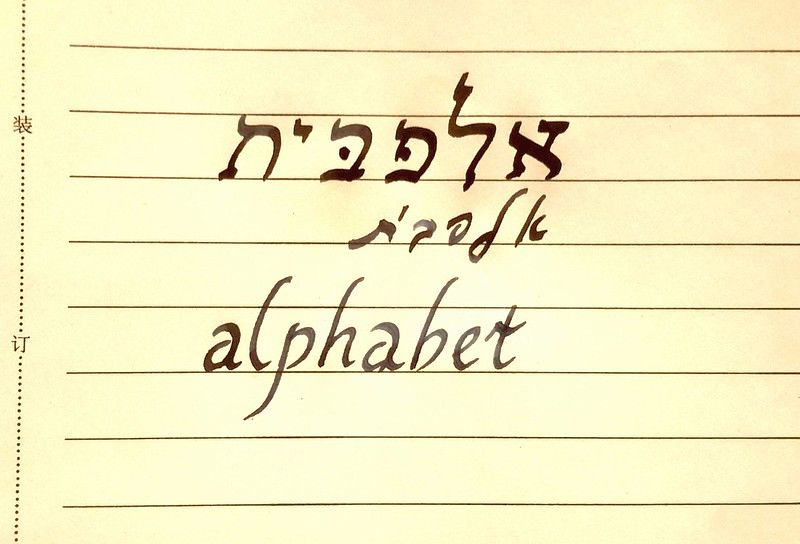 אלפבּית
אלפבית
alphabet
装
订